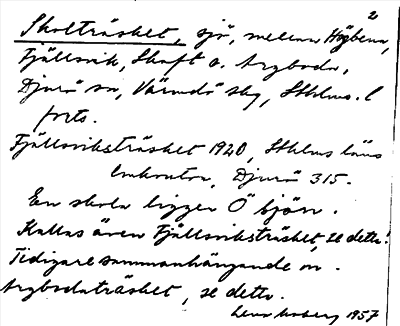 2
Skolträsket, sjö, mellan Högbena,
Fjällsvik, Skaft o. Azyboda,
Djurö sn, Värmdö skg, Sthlms. l
forts.
Fjällsviksträsket 1920, Sthlms läns
Djurö 315.
En skola ligger Ö sjön.
Kallas även Fjällsviksträsket, se detta!
Tidigare sammanhängande m.
Azybodaträsket, se detta.
1957